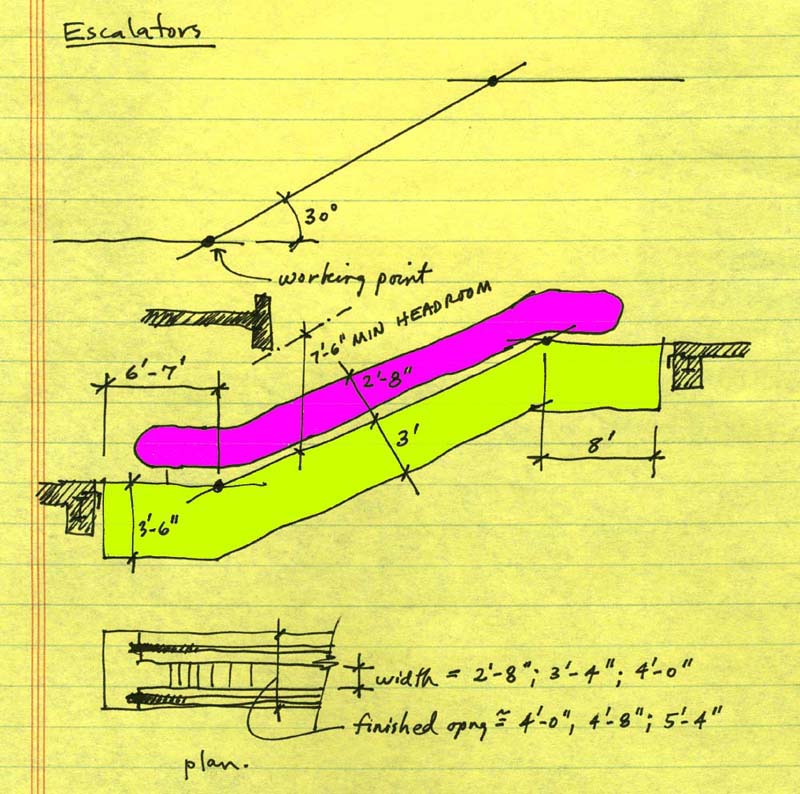 Escalators
30°
working point
7'-6" MIN HEADROOM
6'-7'
2'-8"
3'
8'
3'-6"
width = 2'-8"; 3'-4"; 4'-0"
finished opng ≅ 4'-0", 4'-8"; 5'-4"
plan.